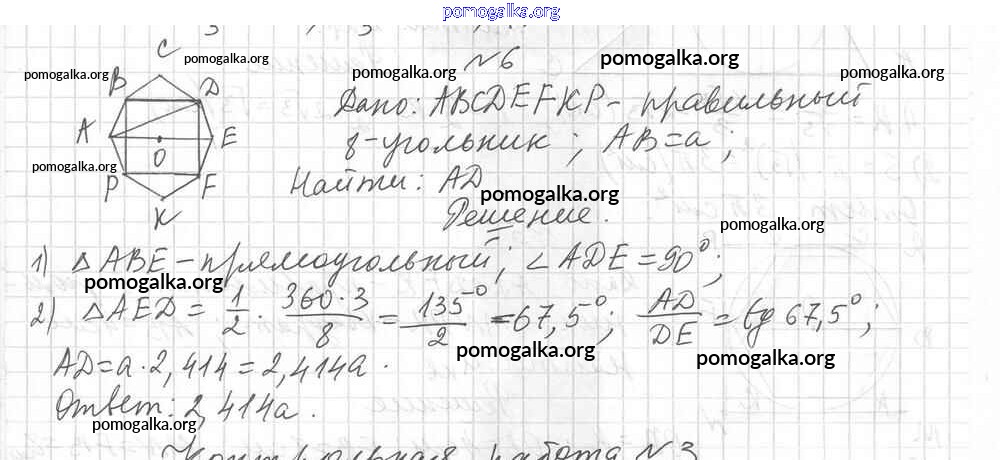 pomogalka.org
C
B
D
A
E
O
P
F
K
N6
Дано: ABCDEFKP - правильный
8-угольник; AB=a;
Найти: AD
Решение.
1) △ABE - прямоугольный; ∠ADE = 90°;
2) △AED = 1/2 · 360·3/8 = 135°/2 = 67,5°; AD/DE = tg 67,5°;
AD = a · 2,414 = 2,414a.
Ответ: 2,414a.
Контрольная работа N3
pomogalka.org
pomogalka.org
pomogalka.org
pomogalka.org
pomogalka.org
pomogalka.org
pomogalka.org
pomogalka.org
pomogalka.org
pomogalka.org
pomogalka.org
pomogalka.org